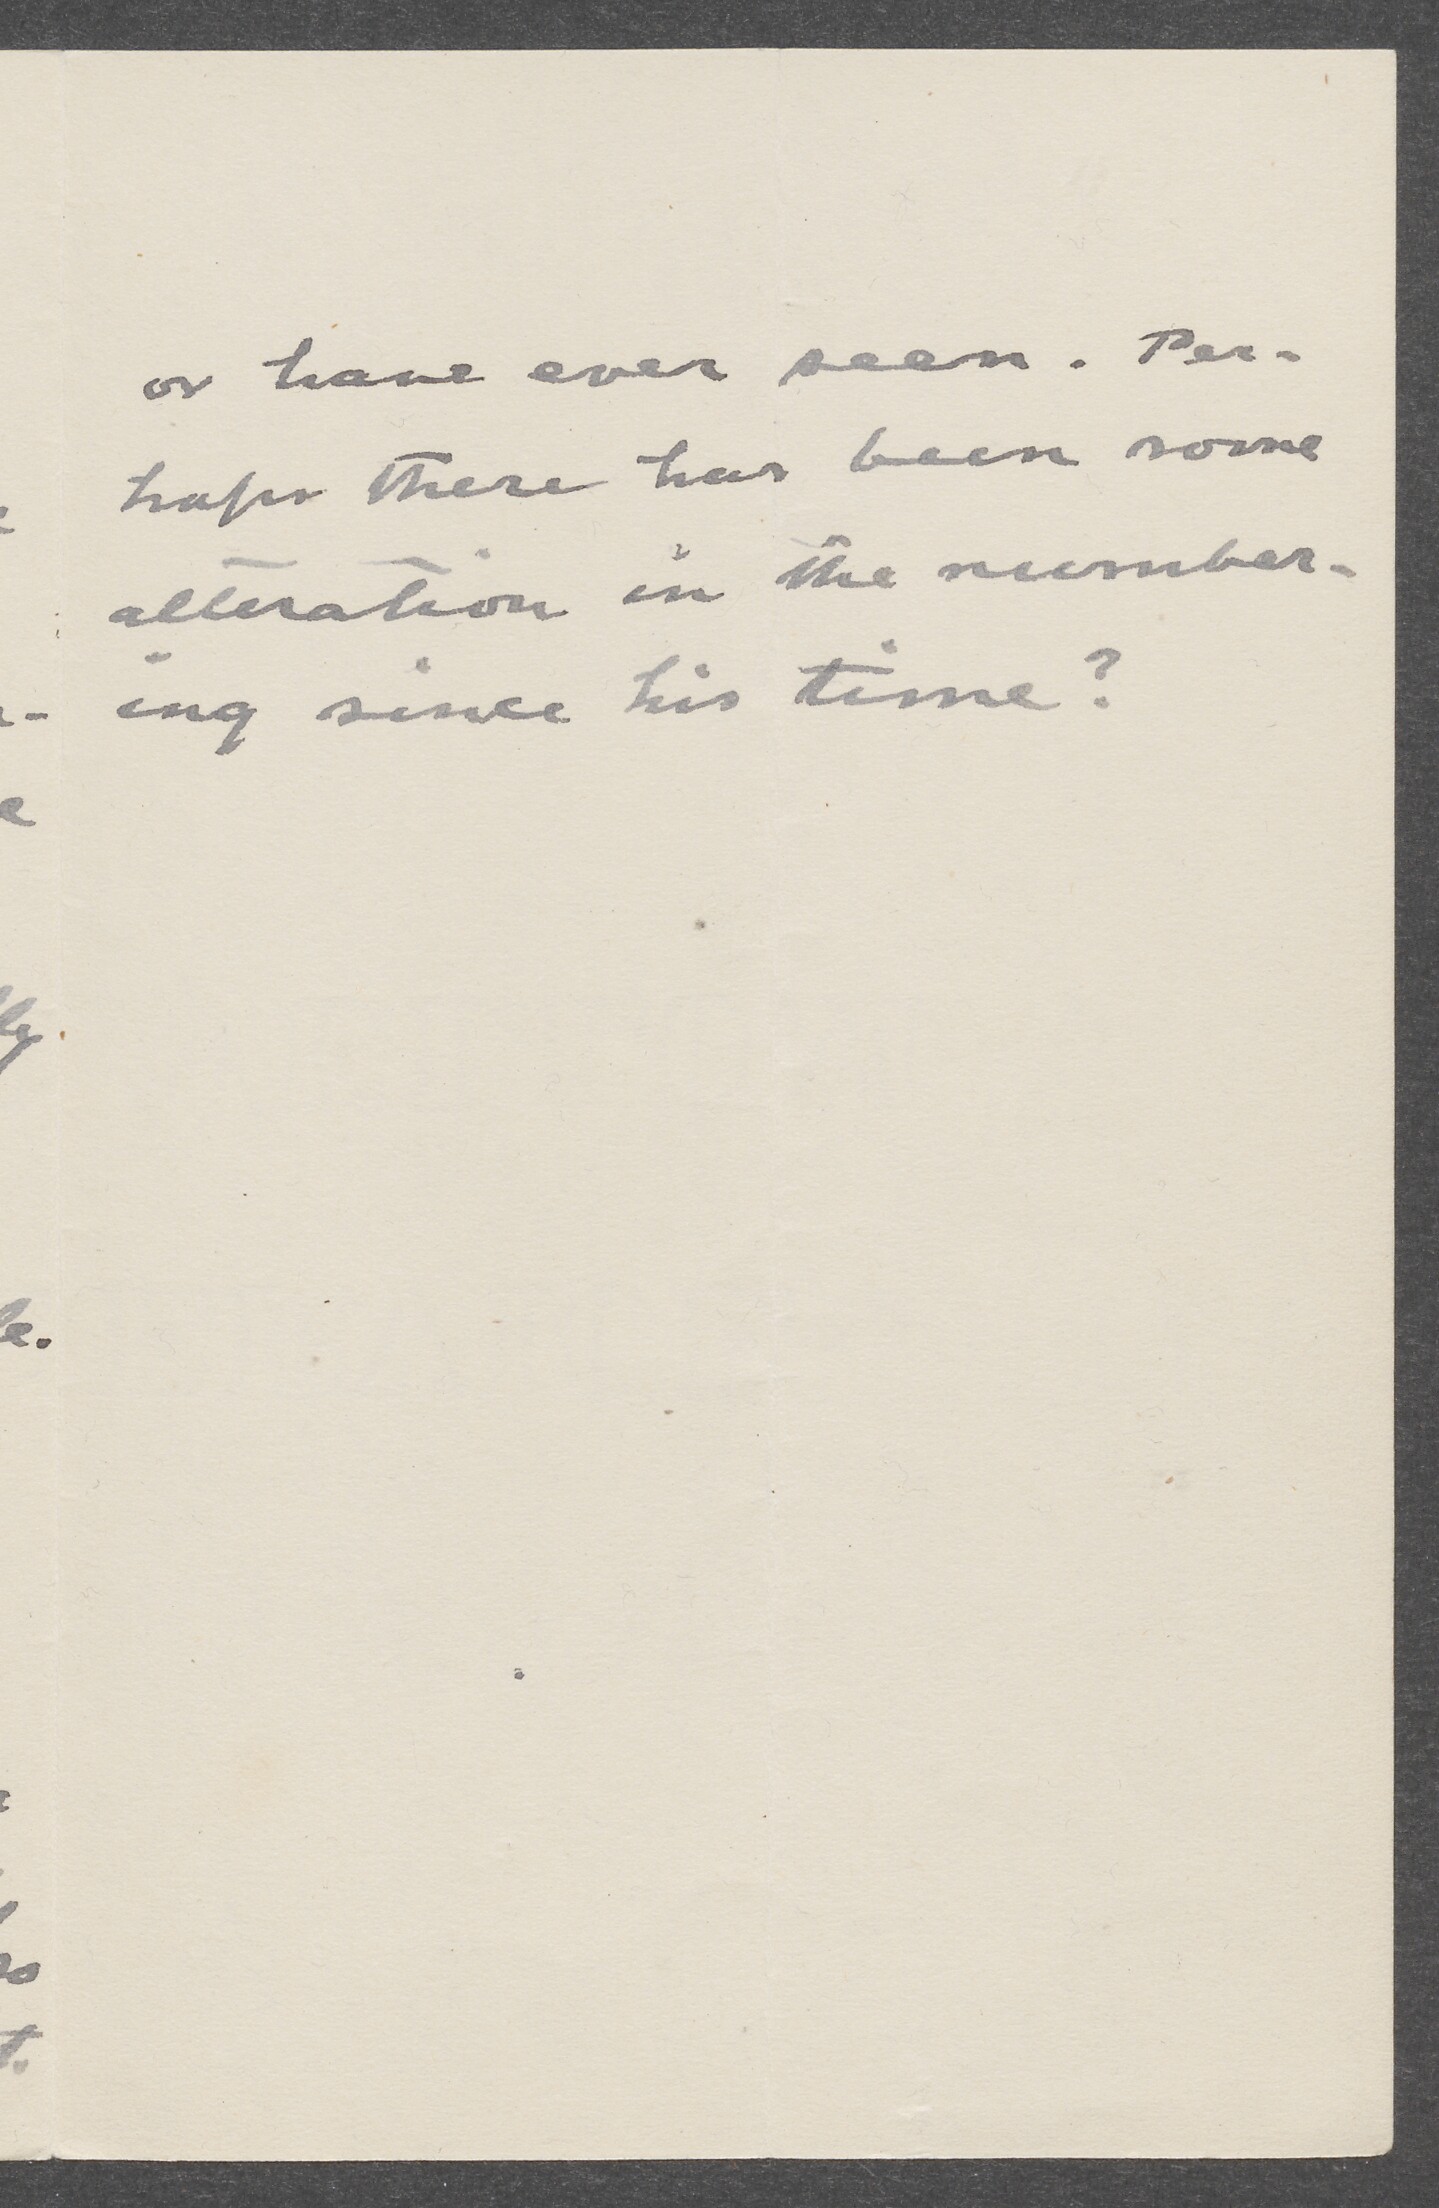 or have ever seen. Per-
haps there has been some
alteration in the number-
ing since his time?